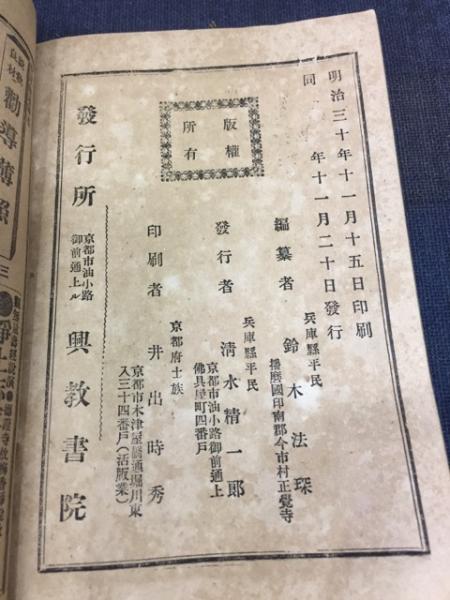 明治三十年十一月十五日印刷
同年十一月二十日發行
版權
所有
編纂者
兵庫縣平民
鈴木法琛
播磨國印南郡今市村正覺寺
發行者
兵庫縣平民
清水精一郎
京都市油小路御前通上
佛具屋町四番戶
印刷者
京都府士族
井出時秀
京都市木津屋橋通堀川東
入三十四番戶(活版業)
發行所
京都市油小路
御前通上ル
興教書院
勸導薄照
三